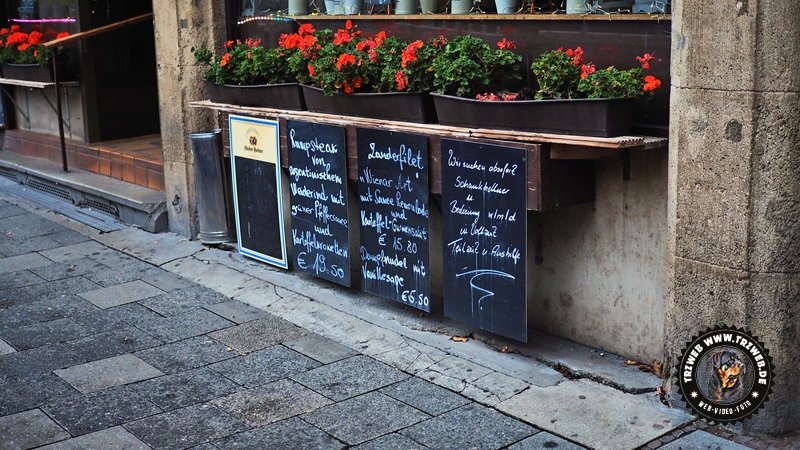 Rumpsteak
vom
argentinischem
Weiderind mit
grüner Pfeffersauce
und
Kartoffelkroketten
€ 19.50
Zanderfilet
"Wiener Art"
mit Sauce Remoulade
und
Kartoffel-Gurkensalat
€ 15.80
Dampfnudel mit
Vanillesoße
€ 6.50
Wir suchen ab sofort
Schankkellner
u
Bedienung w/m/d
in Vollzeit
Teilzeit u Aushilfe
TRIWEB WWW.TRIWEB.DE
WEB-VIDEO-FOTO